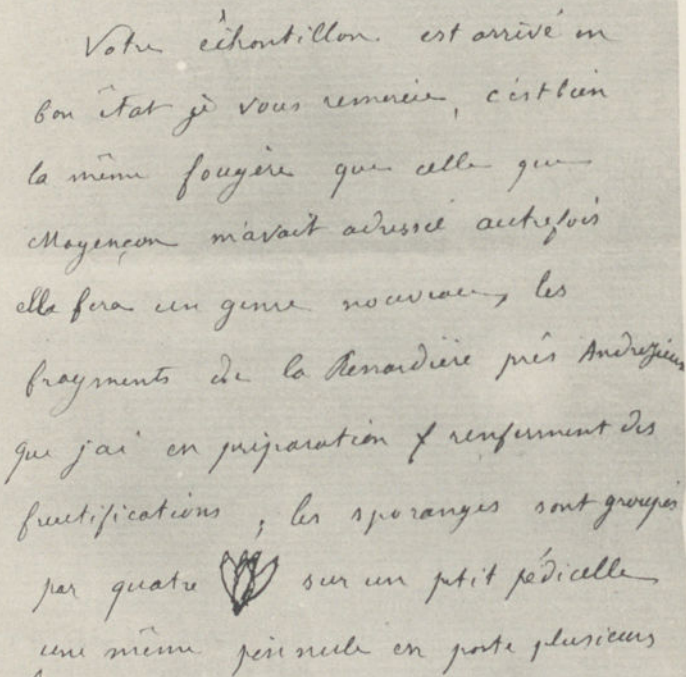 Votre échantillon est arrivé en
bon état je vous remercie, c'est bien
la même fougère que celle que
Mayençon m'avait adressé autrefois
elle fera un genre nouveau, les
fragments de la Renardière près Andrézieux
que j'ai en préparation renferment des
fructifications, les sporanges sont groupés
par quatre sur un petit pédicelle
une même pinnule en porte plusieurs